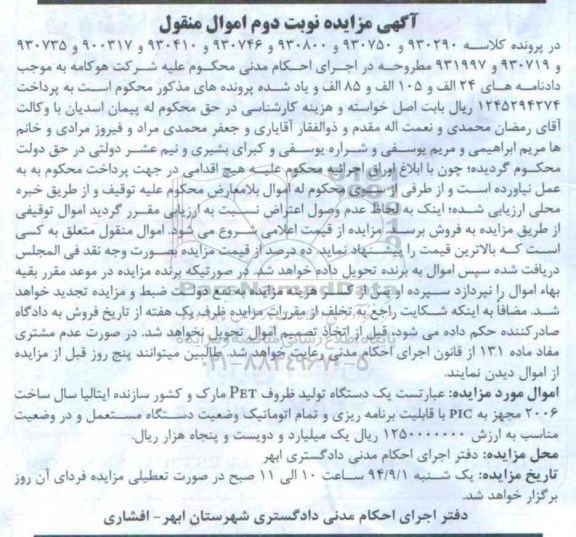 آگهی مزایده نوبت دوم اموال منقول
در پرونده کلاسه ۹۳۰۲۹۰ و ۹۳۰۷۵۰ و ۹۳۰۸۰۰ و ۹۳۰۷۴۶ و ۹۳۰۴۱۰ و ۹۰۰۳۱۷ و ۹۳۰۷۳۵
و ۹۳۰۷۱۹ و ۹۳۱۹۹۷ مطروحه در اجرای احکام مدنی محکوم علیه شرکت هوکامه به موجب
دادنامه های ۲۴ الف و ۱۰۵ الف و ۸۵ الف و یاد شده پرونده های مذکور محکوم است به پرداخت
۱۲۴۵۲۹۴۲۷۴ ریال بابت اصل خواسته و هزینه کارشناسی در حق محکوم له پیمان اسدیان با وکالت
آقای رمضان محمدی و نعمت اله مقدم و ذوالفقار آقایاری و جعفر محمدی مراد و فیروز مرادی و خانم
ها مریم ابراهیمی و مریم یوسفی و شراره یوسفی و کبرای بشیری و نیم عشر دولتی در حق دولت
محکوم گردیده؛ چون با ابلاغ اوراق اجرائیه محکوم علیه هیچ اقدامی در جهت پرداخت محکوم به به
عمل نیاورده است و از طرفی از سوی محکوم له اموال بلامعارض محکوم علیه توقیف و از طریق خبره
محلی ارزیابی شده؛ اینک به لحاظ عدم وصول اعتراض نسبت به ارزیابی مقرر گردید اموال توقیفی
از طریق مزایده به فروش برسد. مزایده از قیمت اعلامی شروع می شود. اموال منقول متعلق به کسی
است که بالاترین قیمت را پیشنهاد نماید. ده درصد از قیمت مزایده بصورت وجه نقد فی المجلس
دریافت شده سپس اموال به برنده تحویل داده خواهد شد. در صورتیکه برنده مزایده در موعد مقرر بقیه
بهاء اموال را نپردازد سپرده او پس از کسر هزینه مزایده به نفع دولت ضبط و مزایده تجدید خواهد
شد. مضافاً به اینکه شکایت راجع به تخلف از مقررات مزایده ظرف یک هفته از تاریخ فروش به دادگاه
صادرکننده حکم داده می شود، قبل از اتخاذ تصمیم اموال تحویل نخواهد شد. در صورت عدم مشتری
مفاد ماده ۱۳۱ از قانون اجرای احکام مدنی رعایت خواهد شد. طالبین میتوانند پنج روز قبل از مزایده
از اموال دیدن نمایند.
اموال مورد مزایده: عبارتست یک دستگاه تولید ظروف PET مارک و کشور سازنده ایتالیا سال ساخت
۲۰۰۶ مجهز به PIC با قابلیت برنامه ریزی و تمام اتوماتیک وضعیت دستگاه مستعمل و در وضعیت
مناسب به ارزش ۱۲۵۰۰۰۰۰۰۰ ریال یک میلیارد و دویست و پنجاه هزار ریال.
محل مزایده: دفتر اجرای احکام مدنی دادگستری ابهر
تاریخ مزایده: یک شنبه ۹۴/۹/۱ ساعت ۱۰ الی ۱۱ صبح در صورت تعطیلی مزایده فردای آن روز
برگزار خواهد شد.
دفتر اجرای احکام مدنی دادگستری شهرستان ابهر- افشاری